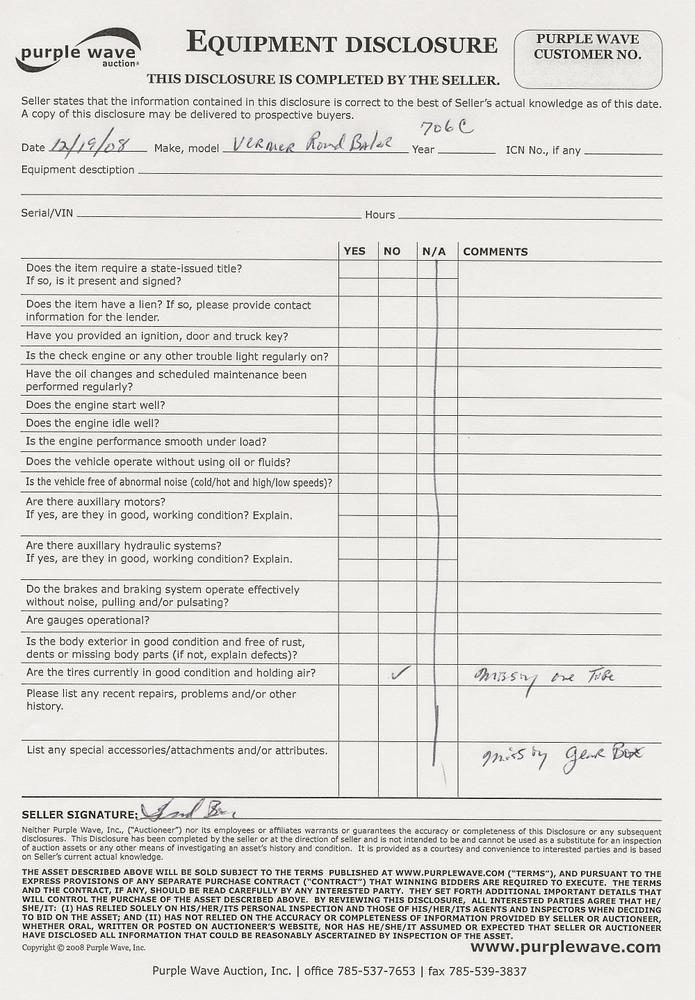 purple wave
auction®
EQUIPMENT DISCLOSURE
PURPLE WAVE
CUSTOMER NO.
THIS DISCLOSURE IS COMPLETED BY THE SELLER.
Seller states that the information contained in this disclosure is correct to the best of Seller's actual knowledge as of this date.
A copy of this disclosure may be delivered to prospective buyers.
706C
Date 12/19/08 Make, model Vermer Rond Baler Year ICN No., if any
Equipment desctiption
Serial/VIN Hours
YES NO N/A COMMENTS
Does the item require a state-issued title?
If so, is it present and signed?
Does the item have a lien? If so, please provide contact
information for the lender.
Have you provided an ignition, door and truck key?
Is the check engine or any other trouble light regularly on?
Have the oil changes and scheduled maintenance been
performed regularly?
Does the engine start well?
Does the engine idle well?
Is the engine performance smooth under load?
Does the vehicle operate without using oil or fluids?
Is the vehicle free of abnormal noise (cold/hot and high/low speeds)?
Are there auxillary motors?
If yes, are they in good, working condition? Explain.
Are there auxillary hydraulic systems?
If yes, are they in good, working condition? Explain.
Do the brakes and braking system operate effectively
without noise, pulling and/or pulsating?
Are gauges operational?
Is the body exterior in good condition and free of rust,
dents or missing body parts (if not, explain defects)?
Are the tires currently in good condition and holding air? ✓ missing one Tube
Please list any recent repairs, problems and/or other
history.
List any special accessories/attachments and/or attributes. missing Gear Box
SELLER SIGNATURE:
Neither Purple Wave, Inc., ("Auctioneer") nor its employees or affiliates warrants or guarantees the accuracy or completeness of this Disclosure or any subsequent
disclosures. This Disclosure has been completed by the seller or at the direction of seller and is not intended to be and cannot be used as a substitute for an inspection
of auction assets or any other means of investigating an asset's history and condition. It is provided as a courtesy and convenience to interested parties and is based
on Seller's current actual knowledge.
THE ASSET DESCRIBED ABOVE WILL BE SOLD SUBJECT TO THE TERMS PUBLISHED AT WWW.PURPLEWAVE.COM ("TERMS"), AND PURSUANT TO THE
EXPRESS PROVISIONS OF ANY SEPARATE PURCHASE CONTRACT ("CONTRACT") THAT WINNING BIDDERS ARE REQUIRED TO EXECUTE. THE TERMS
AND THE CONTRACT, IF ANY, SHOULD BE READ CAREFULLY BY ANY INTERESTED PARTY. THEY SET FORTH ADDITIONAL IMPORTANT DETAILS THAT
WILL CONTROL THE PURCHASE OF THE ASSET DESCRIBED ABOVE. BY REVIEWING THIS DISCLOSURE, ALL INTERESTED PARTIES AGREE THAT HE/
SHE/IT: (I) HAS RELIED SOLELY ON HIS/HER/ITS PERSONAL INSPECTION AND THOSE OF HIS/HER/ITS AGENTS AND INSPECTORS WHEN DECIDING
TO BID ON THE ASSET; AND (II) HAS NOT RELIED ON THE ACCURACY OR COMPLETENESS OF INFORMATION PROVIDED BY SELLER OR AUCTIONEER,
WHETHER ORAL, WRITTEN OR POSTED ON AUCTIONEER'S WEBSITE, NOR HAS HE/SHE/IT ASSUMED OR EXPECTED THAT SELLER OR AUCTIONEER
HAVE DISCLOSED ALL INFORMATION THAT COULD BE REASONABLY ASCERTAINED BY INSPECTION OF THE ASSET.
Copyright © 2008 Purple Wave, Inc. www.purplewave.com
Purple Wave Auction, Inc. | office 785-537-7653 | fax 785-539-3837